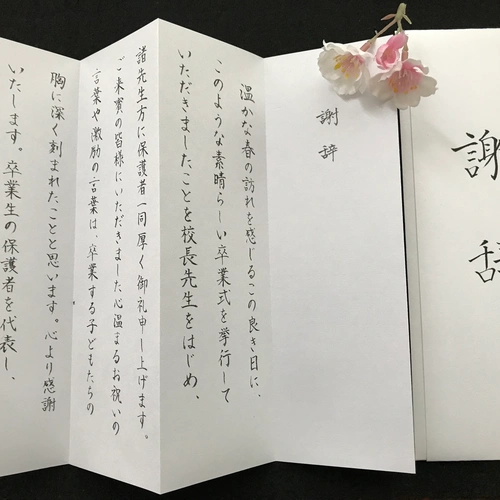 謝辞
謝辞
温かな春の訪れを感じるこの良き日に、
このような素晴らしい卒業式を挙行して
いただきましたことを校長先生をはじめ、
諸先生方に保護者一同厚く御礼申し上げます。
ご来賓の皆様にいただきました心温まるお祝いの
言葉や激励の言葉は、卒業する子どもたちの
胸に深く刻まれたことと思います。心より感謝
いたします。卒業生の保護者を代表し、